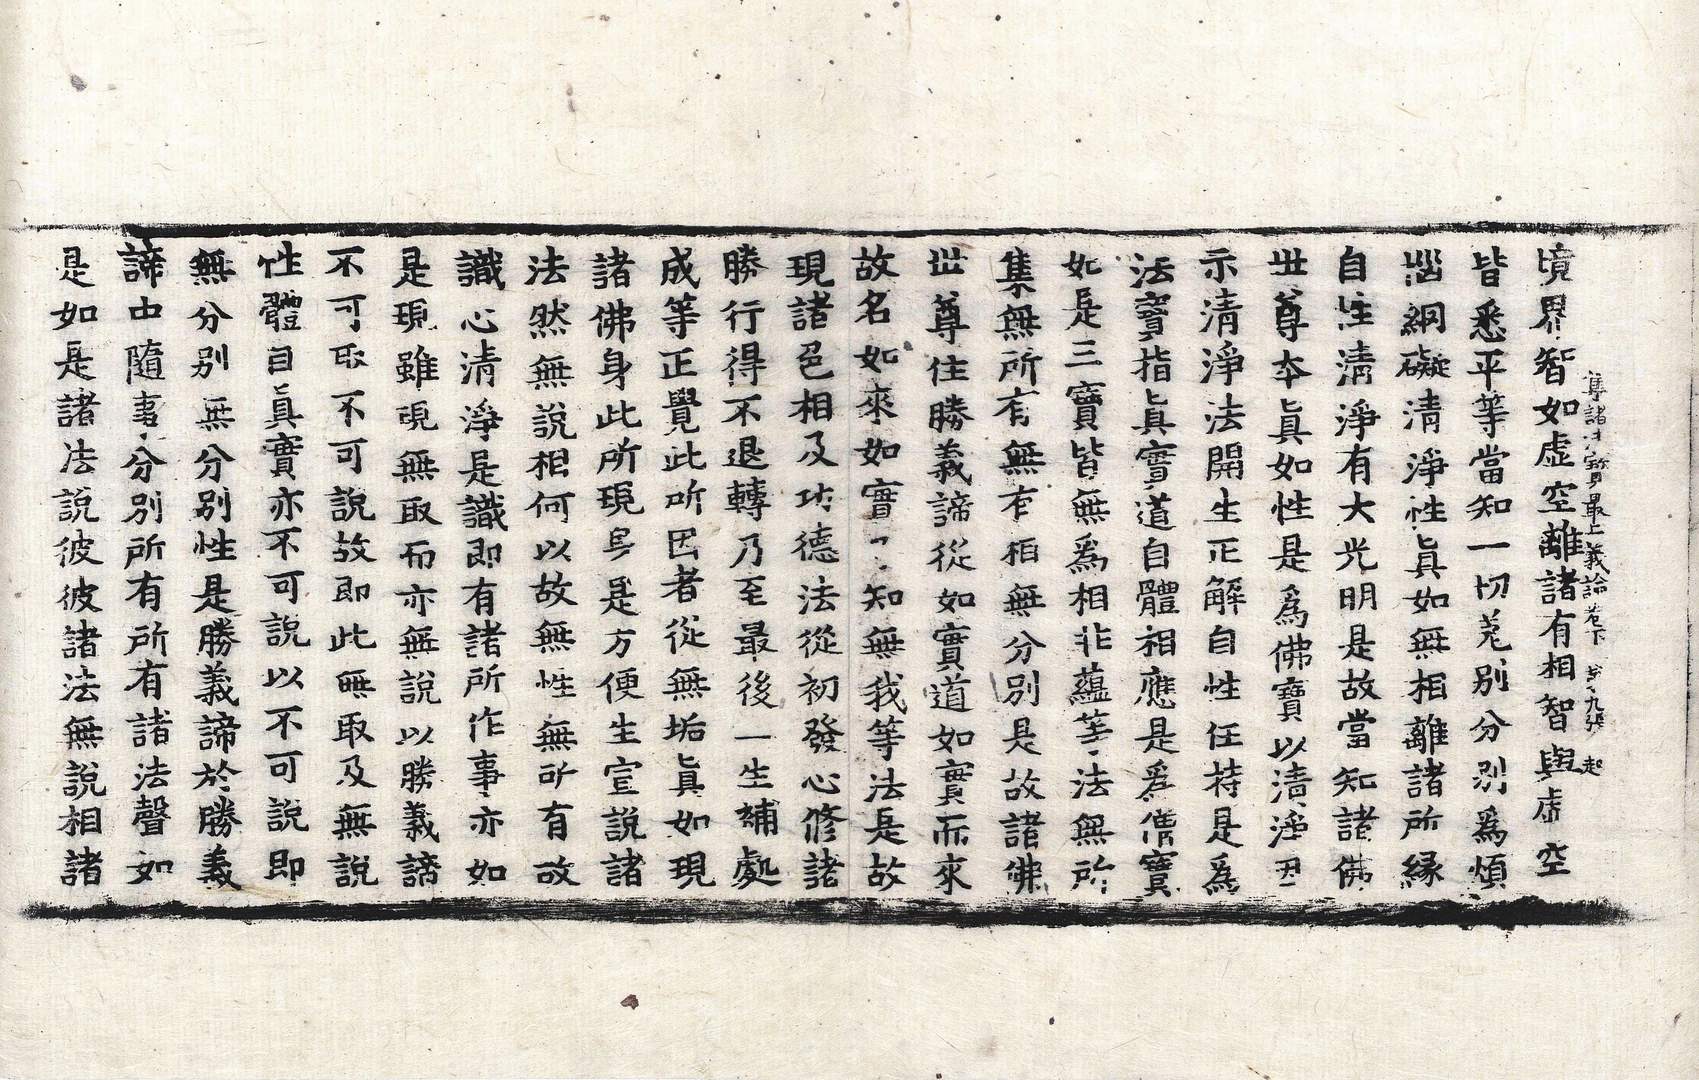 集諸法寶最上義論卷下 第九張 起
境界智如虛空離諸有相智與虛空
皆悉平等當知一切見別分別爲煩
惱網礙清淨性眞如無相離諸所緣
自性清淨有大光明是故當知諸佛
世尊本眞如性是爲佛寶以清淨
示清淨法開生正解自性任持是爲
法寶指眞實道自體相應是爲僧寶
如是三寶皆無爲相非蘊等法無所
集無所有無有相無分別是故諸佛
世尊住勝義諦從如實道如實而來
故名如來如實知無我等法是故
現諸色相及功德法從初發心修諸
勝行得不退轉乃至最後一生補處
成等正覺此所因者從無垢眞如現
諸佛身此所現身是方便生宣說諸
法然無說相何以故無性無所有故
識心清淨是識即有諸所作事亦如
是現雖現無取而亦無說以勝義諦
不可取不可說故即此無取及無說
性體自眞實亦不可說以不可說即
無分別無分別性是勝義諦於勝義
諦中隨事分別所有所有諸法聲如
是如是諸法說彼彼諸法無說相諸